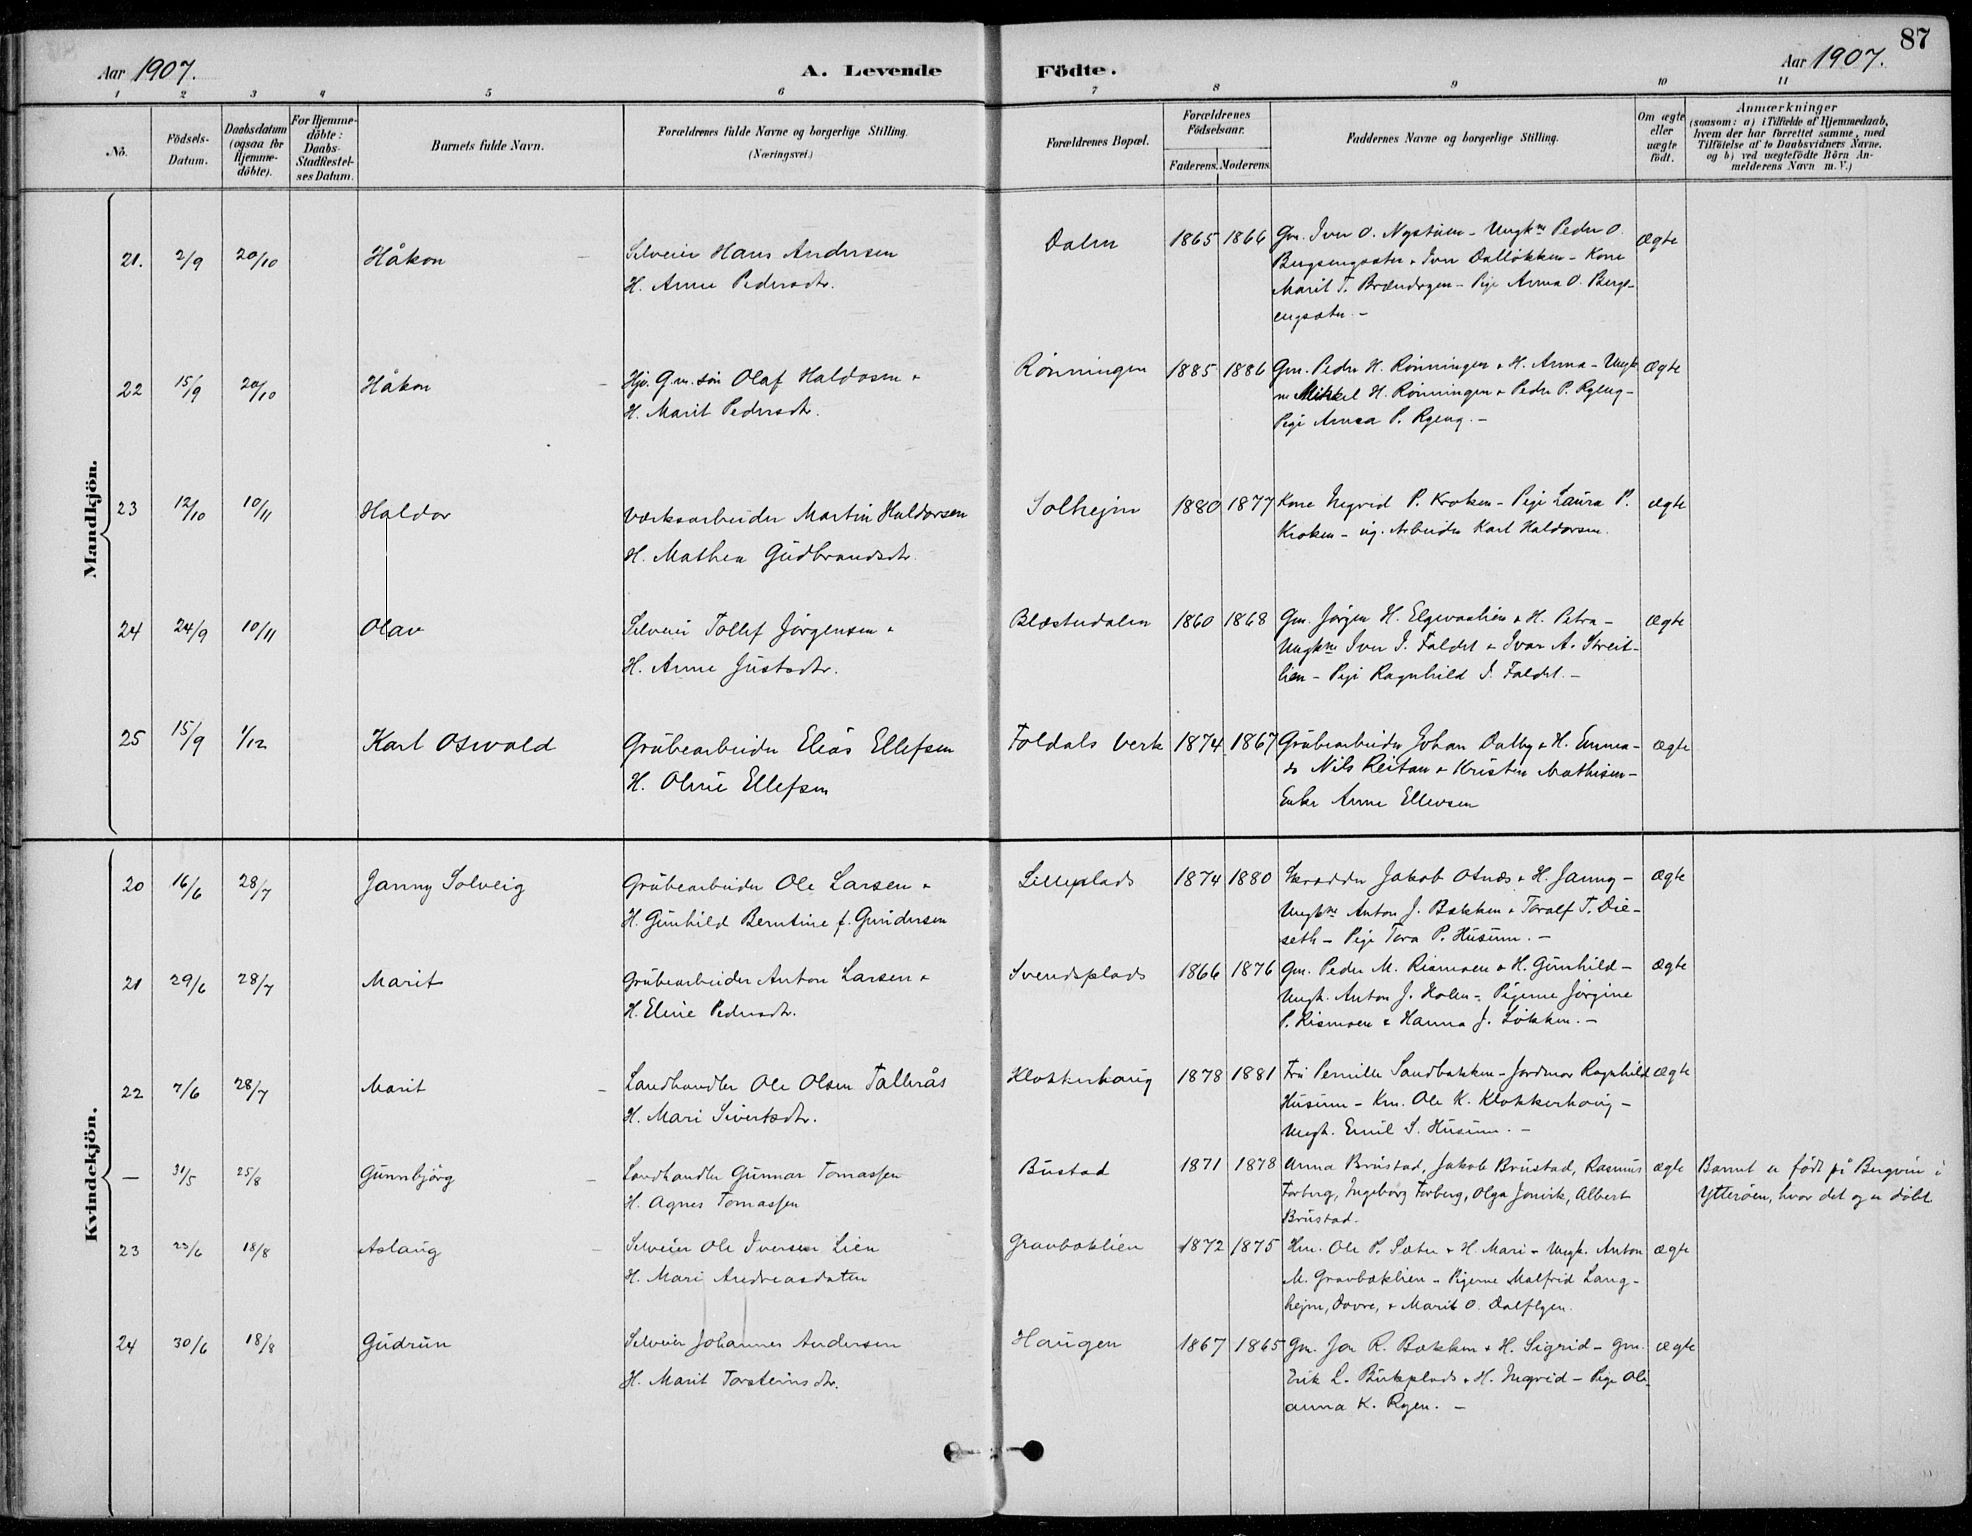 87
Aar 1907.
A. Levende Födte.
Aar 1907.
1 2 3 4 5 6 7 8 9 10 11
No.
Födsels-Datum.
Daabsdatum (ogsaa för Hjemme-döbte).
For Hjemme-döbte: Daabs-Stadfæstel-ses Datum.
Barnets fulde Navn.
Forældrenes fulde Navne og borgerlige Stilling.
(Næringsvei.)
Forældrenes Bopæl.
Forældrenes Födselsaar.
Faderens. Moderens.
Faddernes Navne og borgerlige Stilling.
Om ægte eller uægte födt.
Anmærkninger
(saasom: a) i Tilfælde af Hjemmedaab,
hvem der har forrettet samme, med
Tilföielse af to Daabsvidners Navne.
og b) ved uægtefödte Börn An-
melderens Navn m. V.)
Mandkjön.
21. 2/9 20/10 Håkon
Selveier Hans Andersen
H. Anne Pedersdtr.
Dalen 1865 1866
Gm. Iver O. Nystuen - Ungkm Peder O.
Bergsengsæter + Iver Dalløkken - Kone
Marit T. Brændvgen - Pige Anna O. Bergs-
engsæter. -
ægte
22 15/9 20/10 Håkon
Hjv. Gm. søn Olaf Haldosen +
H. Marit Pedersdtr.
Rönningen 1885 1886
Gm. Peder H. Rönningen + H. Anna - Ungk
m Mikkel H. Rönningen + Peder P. Ryeng -
Pige Anna P. Ryeng. -
Ægte
23 12/10 10/11 Haldor
Værksarbeider Martin Haldorsen
H. Mathea Gudbrandsdtr.
Solhejm 1880 1877
Kone Ingrid P. Kroken - Pige Laura P.
Kroken - ug. Arbeider Karl Haldorsen.
ægte
24 24/9 10/11 Olav
Selveier Tollef Jörgensen +
H. Anne Justsdtr.
Blæsterdalen 1860 1868
Gm. Jörgen H. Elgvaslien + H. Petra -
Ungkm Iver J. Faldet + Ivar A. Streit-
lien - Pige Ragnhild J. Faldet. -
Ægte
25 15/9 1/12 Karl Oswald
Grubearbeider Elias Ellefsen
H. Oline Ellefsen
Foldals Verk 1874 1867
Grubearbeider Johan Dalby + H. Emma -
do Nils Reitan + Kristen Mathisen -
Enke Anne Ellevsen
ægte
Kvindekjön.
20 16/6 28/7 Janny Solveig
Grubearbeider Ole Larsen +
H. Gunhild Berntine f. Gundersen
Lilleplads 1874 1880
Skrædder Jakob Otnes + H. Janny -
Ungkm Anton J. Bakken + Toralf T. Die-
seth - Pige Tora P. Husum. -
ægte
21 29/6 28/7 Marit
Grubearbeider Anton Larsen +
H. Eline Pedersdtr.
Svendsplads 1866 1876
Gm. Peder M. Rismoen + H. Gunhild -
Ungk. Anton J. Holen - Pigerne Jørgine
P. Rismoen + Hanna J. Løkken. -
ægte
22 7/6 28/7 Marit
Landhandler Ole Olsen Tallerås
H. Mari Sivertsdtr.
Klokkerhaug 1878 1881
Fru Pernille Sandbakken - Jordmor Ragnhild
Husum - Km. Ole K. Klokkerhaug -
Ungk. Emil S. Husum. -
ægte
- 31/5 25/8 Gunnbjörg
Landhandler Gunnar Tomassen
H. Agnes Tomassen
Bustad 1871 1878
Anna Brustad, Jakob Brustad, Rasmus
Forberg, Ingeborg Forberg, Olga Jonvik, Albert
Brustad.
ægte
Barnet er født på Bergvin i
Ytterøen, hvor det og er döbt
23 23/6 18/8 Aslaug
Selveier Ole Iversen Lien
H. Mari Andreasdaten
Gravbæklien 1872 1875
Hm. Ole P. Sæter + H. Mari - Ungk. Anton
M. Gravbæklien - Pigerne Malfrid Lang-
hejm, Dovre, + Marit O. Dalflyen.
ægte
24 30/6 18/8 Gudrun
Selveier Johannes Andersen
H. Marit Torsteinsdtr.
Haugen 1867 1865
Gm. Jon R. Bakken + H. Sigrid - gm.
Erik L. Birkeplads + H. Ingrid - Pige Ole-
anna K. Ryen. -
ægte